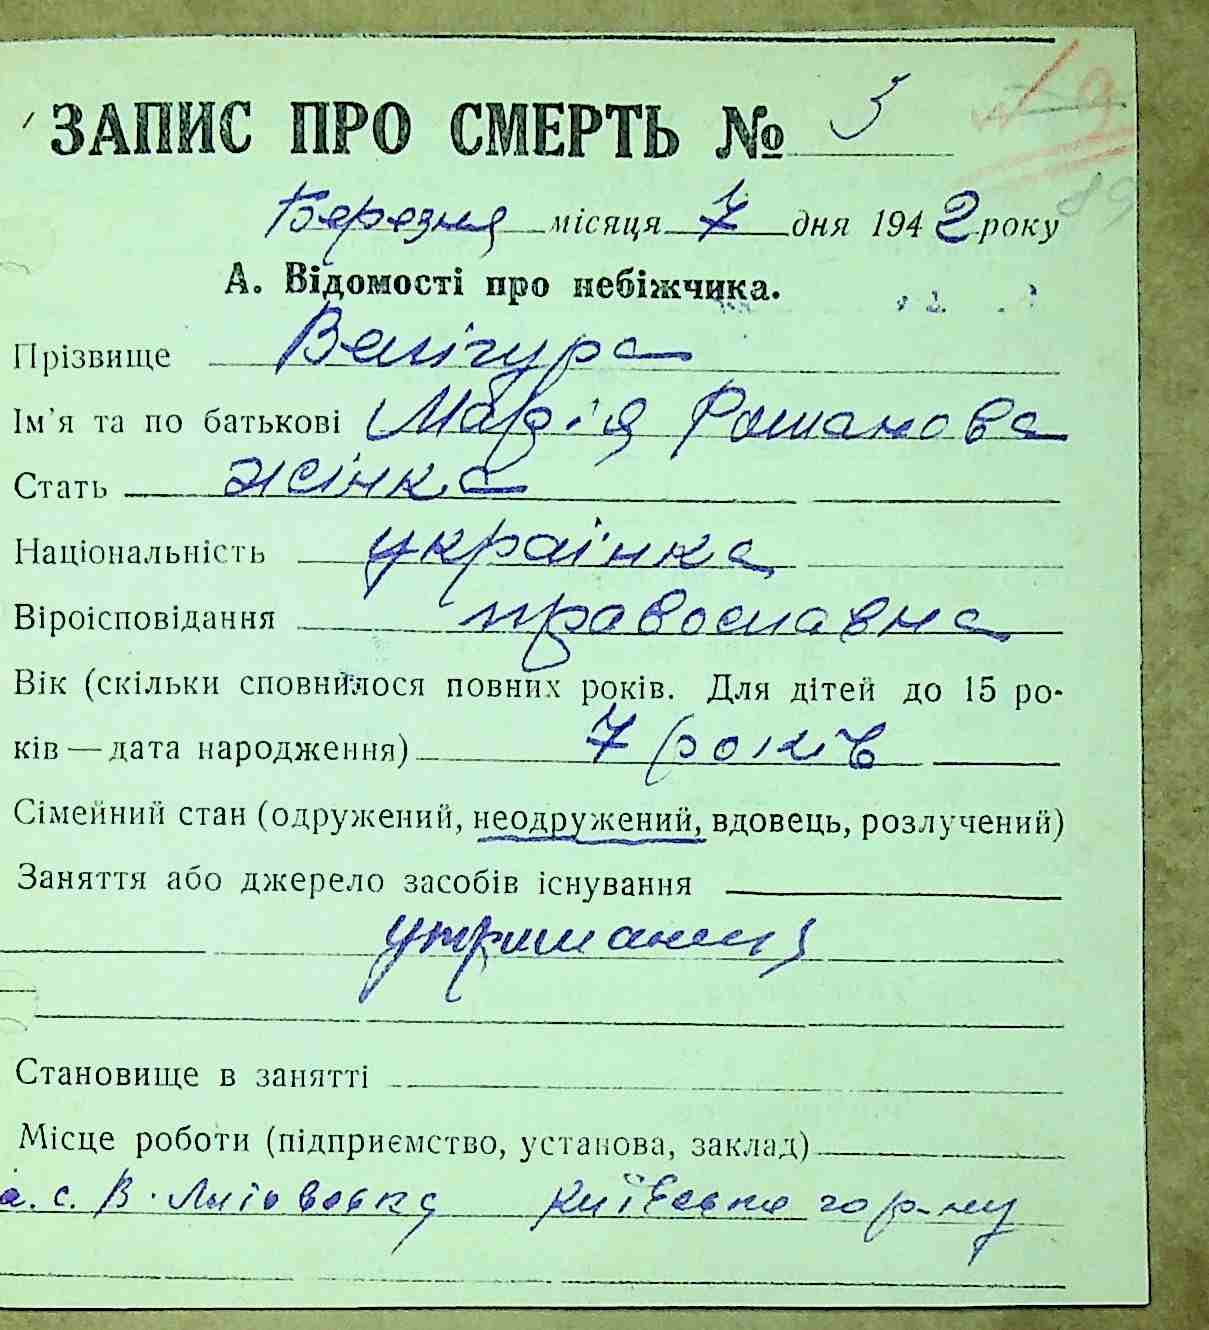 ЗАПИС ПРО СМЕРТЬ № 5
№ 9
89
Березня місяця 7 дня 1942 року
А. Відомості про небіжчика.
Прізвище Велігура
Ім'я та по батькові Марія Романова
Стать жінка
Національність українка
Віроісповідання православна
Вік (скільки сповнилося повних років. Для дітей до 15 ро-
ків — дата народження) 7 років
Сімейний стан (одружений, неодружений, вдовець, розлучений)
Заняття або джерело засобів існування
утриманця
Становище в занятті
Місце роботи (підприємство, установа, заклад)
с. В. Київсько го р-ну